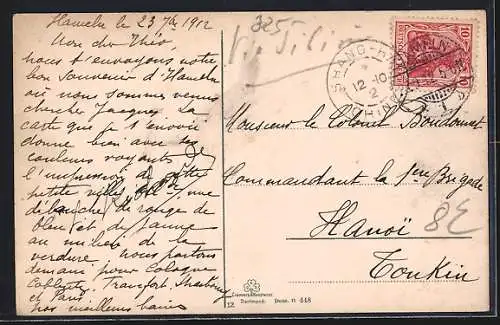 Hameln le 23 7bre 1912
Mon cher Théo,
nous t'envoyons notre
bon souvenir d'Hameln
où nous sommes venus
chercher Jacques. La
carte que je t'envoie
donne bien avec ses
couleurs voyantes
l'impression de cette
petite ville, une
débauche de rouge de
bleu et de jaune
au milieu de la
verdure. nous partons
demain pour Cologne
Coblentz, Francfort, Strasbourg
et Paris
nos meilleurs baisers
325
Via Sibérie
SHANG-HAI
12-10
2
CHINE
HAMELN
10
Monsieur le Colonel Bondonnet
Commandant la 1ère Brigade
Hanoï
Tonkin
8E
12
Dortmund. Dess. n 448